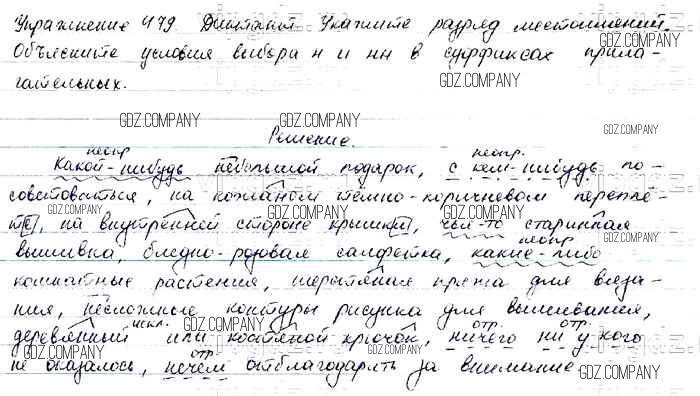 Упражнение 479. Диктант. Укажите разряд местоимений.
Объясните условия выбора н и нн в суффиксах прила-
гательных.
GDZ.COMPANY
GDZ.COMPANY
GDZ.COMPANY GDZ.COMPANY GDZ.COMPANY
Решение.
неопр неопр.
Какой-нибудь небольшой подарок, с кем-нибудь по-
советоваться, на кожаном тёмно-коричневом переплё-
GDZ.COMPANY GDZ.COMPANY GDZ.COMPANY
те, на внутренней стороне крышки, чья-то старинная
неопр
вышивка, бледно-розовая салфетка, какие-либо
GDZ.COMPANY GDZ.COMPANY
комнатные растения, шерстяная пряжа для вяза-
ния, несложные контуры рисунка для вышивания,
искл. GDZ.COMPANY отр. отр.
деревянный или костяной крючок, ничего ни у кого
GDZ.COMPANY отр. GDZ.COMPANY
не оказалось, нечем отблагодарить за внимание.
GDZ.COMPANY